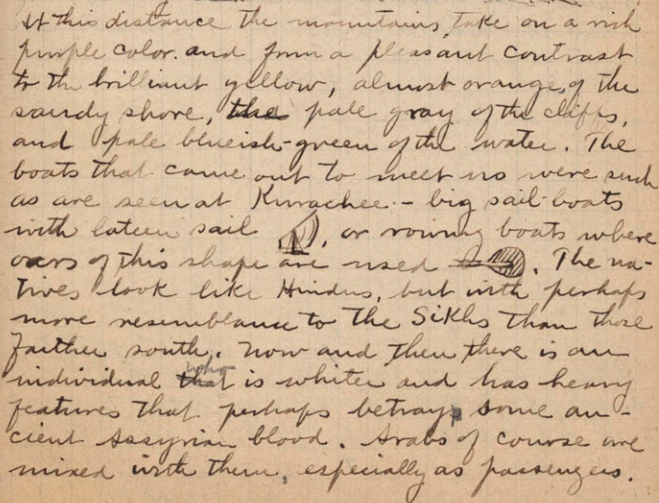 At this distance the mountains take on a rich
purple color. and form a pleasant contrast
to the brilliant yellow, almost orange, of the
sandy shore, the pale gray of the cliffs,
and pale blueish-green of the water. The
boats that came out to meet us were such
as are seen at Kurachee - big sail-boats
with lateen sail , or rowing boats where
oars of this shape are used . The na-
tives look like Hindus, but with perhaps
more resemblance to the Sikhs than those
farther south. Now and then there is an
individual that who is whiter and has heavy
features that perhaps betrays some an-
cient Assyrian blood. Arabs of course are
mixed with them, especially as passengers.